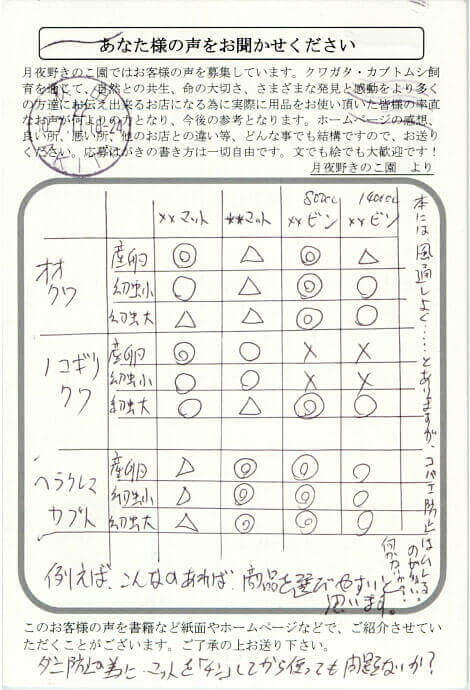 あなた様の声をお聞かせください
月夜野きのこ園ではお客様の声を募集しています。クワガタ・カブトムシ飼
育を通じて、自然との共生、命の大切さ、さまざまな発見と感動をより多く
の方達にお伝え出来るお店になる為に実際に用品をお使い頂いた皆様の率直
なお声が何よりの力となり、今後の参考となります。ホームページの感想、
良い所、悪い所、他のお店との違い等、どんな事でも結構ですので、お送り
ください。応募はがきの書き方は一切自由です。文でも絵でも大歓迎です！
月夜野きのこ園　より
800cc 1400cc
××マット **マット ××ビン ××ビン
オオクワ
産卵 ◎ △ ◎ △
幼虫小 ○ △ ◎ ○
幼虫大 △ △ ◎ ◎
ノコギリクワ
産卵 ◎ ○ × ×
幼虫小 ○ ○ × ×
幼虫大 ○ △ ◎ ○
ヘラクレスカブト
産卵 △ ◎ ◎ ○
幼虫小 △ ◎ ◎ ○
幼虫大 △ ◎ ◎ ○
本には「風通しよく……とありますが、コバエ防止はムレる
例えば、こんなのあれば、商品を選びやすいと
思います。
このお客様の声を書籍など紙面やホームページなどで、ご紹介させてい
ただくことがございます。ご了承の上お送り下さい。
ダニ防止の為に、マットを「チン」してから使っても問題ないか？